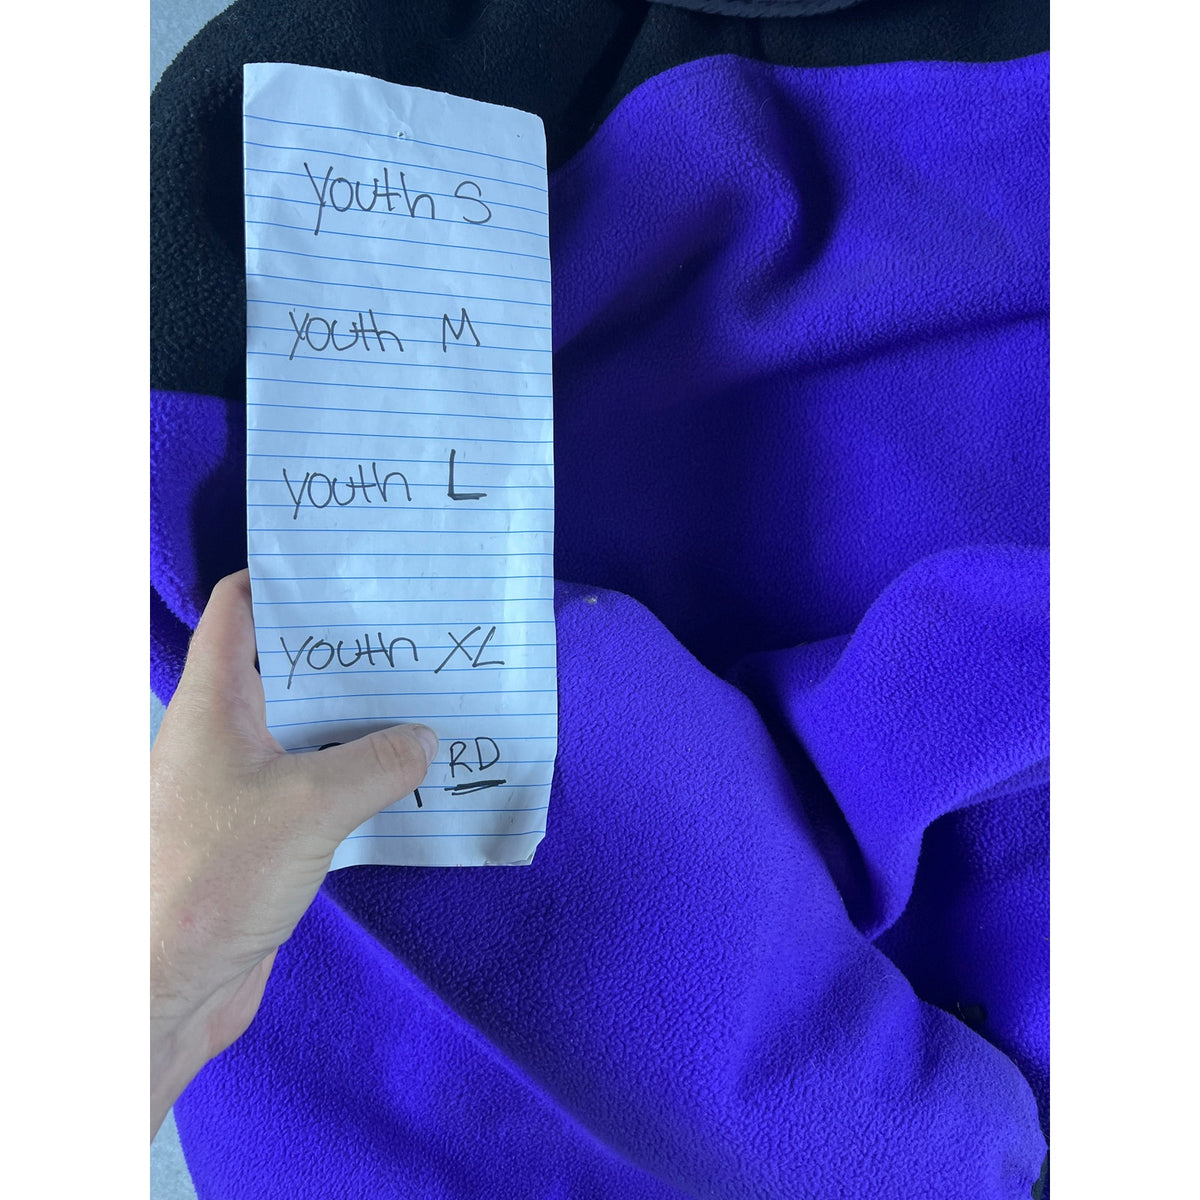 Youth S
Youth M
Youth L
Youth XL
RD